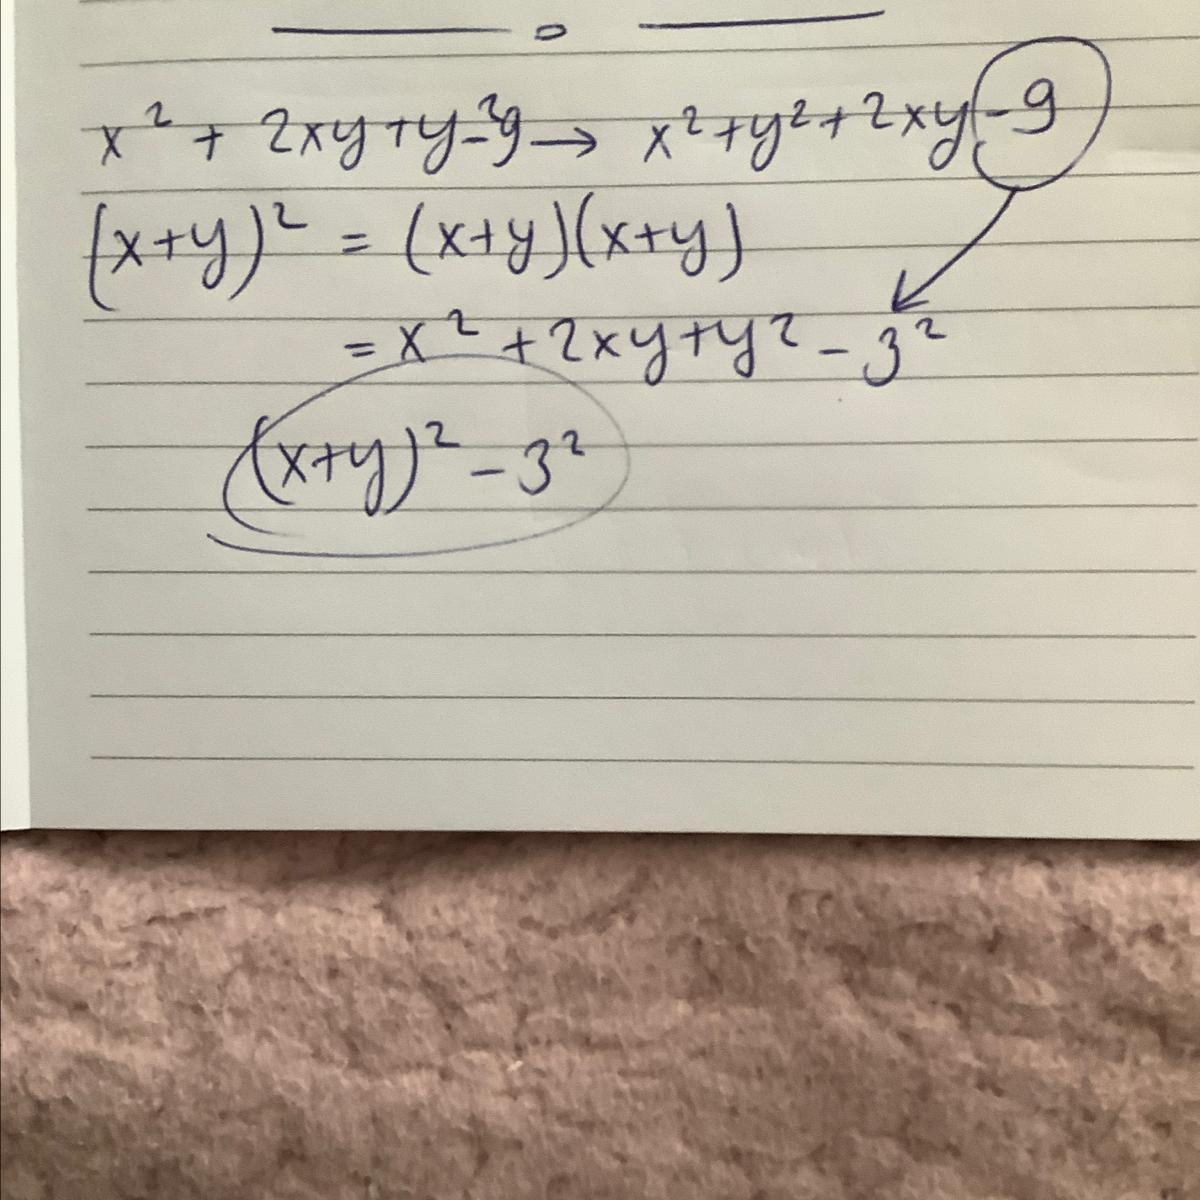 x² + 2xy + y² - 9 → x² + y² + 2xy - 9
(x+y)² = (x+y)(x+y)
= x² + 2xy + y² - 3²
(x+y)² - 3²